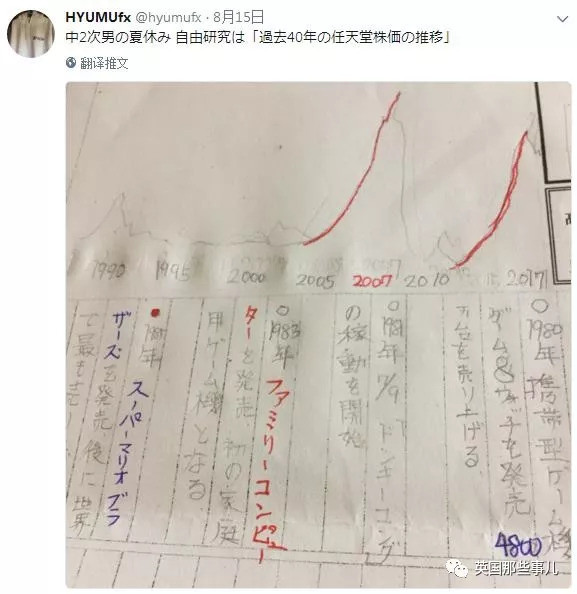 HYUMUfx @hyumufx · 8月15日
中2次男の夏休み 自由研究は「過去40年の任天堂株価の推移」
翻译推文
1990 1995 2000 2005 2007 2010 2017
○1980年携帯型ゲーム機
ゲーム&ウォッチを発売 4800
万台を売り上げる
○1981年7/9 ドンキーコング」
の稼動を開始
○1983年 ファミリーコンピュー
ターを発売、初の家庭
用ゲーム機となる。
●1985年 スーパーマリオブラ
ザーズを発売、後に世界
で最も売
英国那些事儿